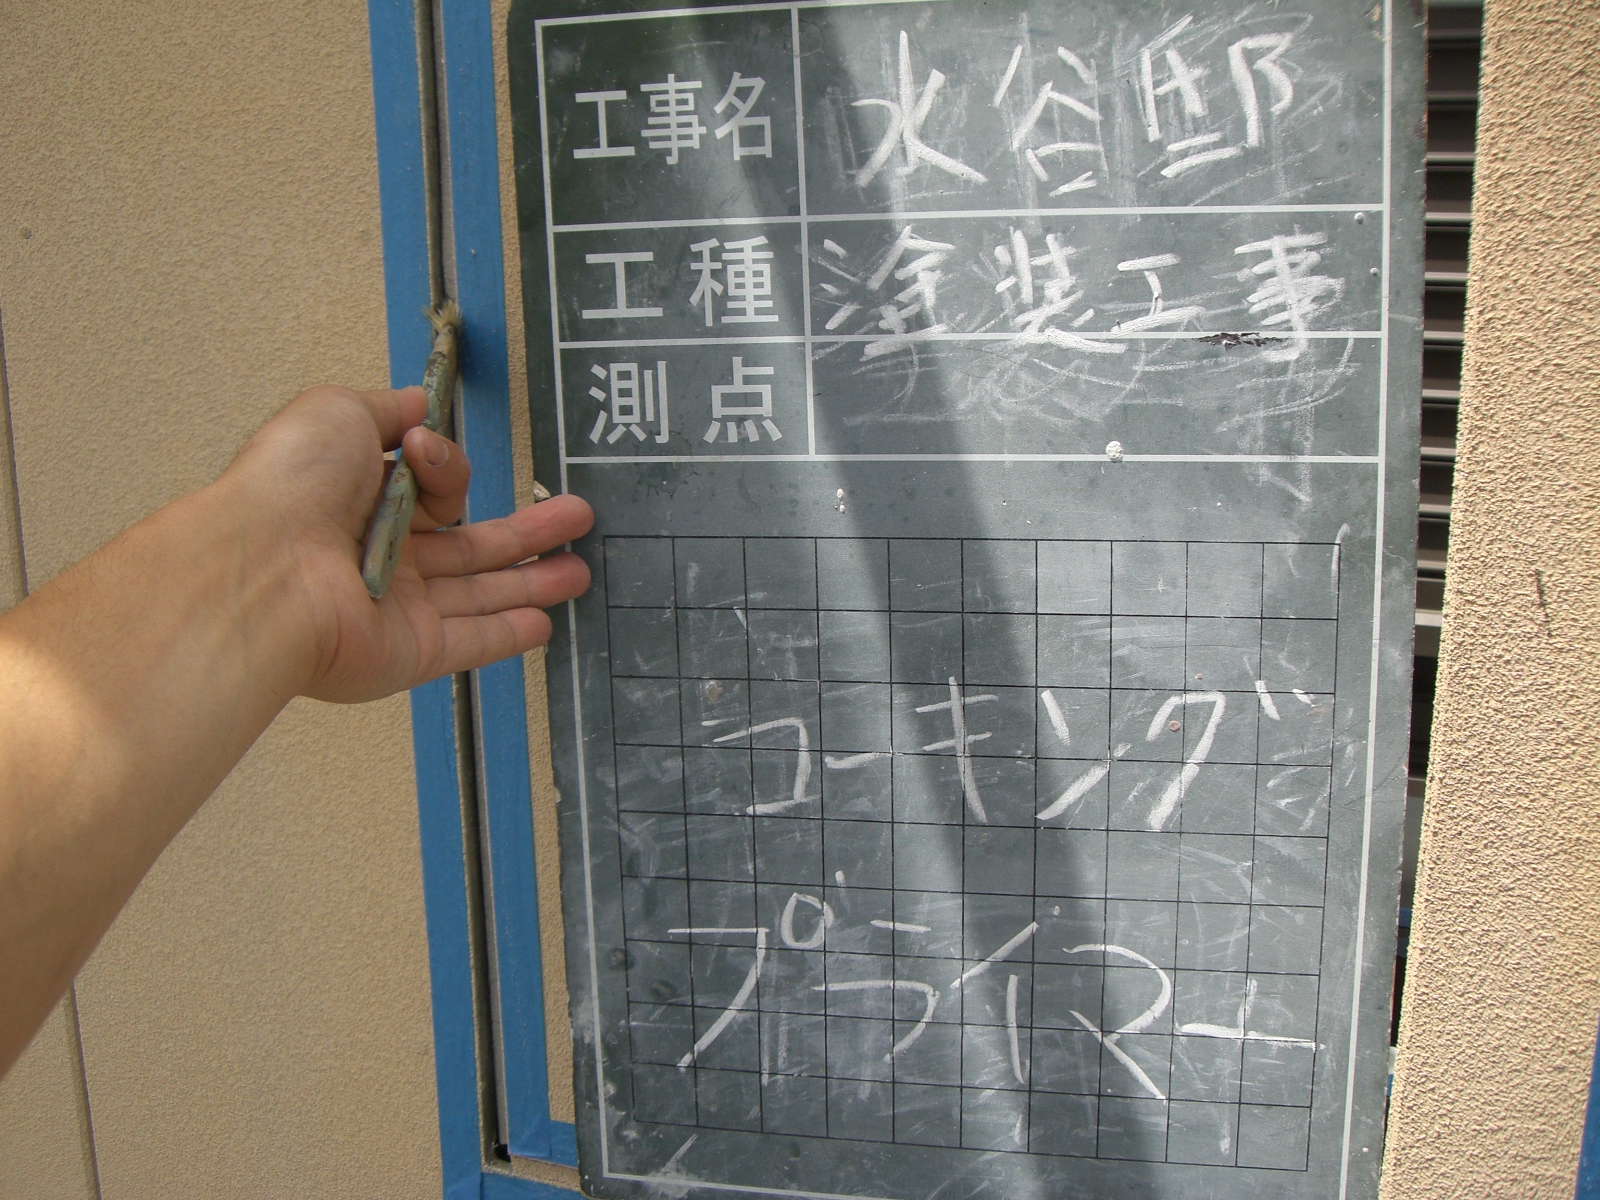 工事名 水谷邸
工種 塗装工事
測点
コーキング
プライマー